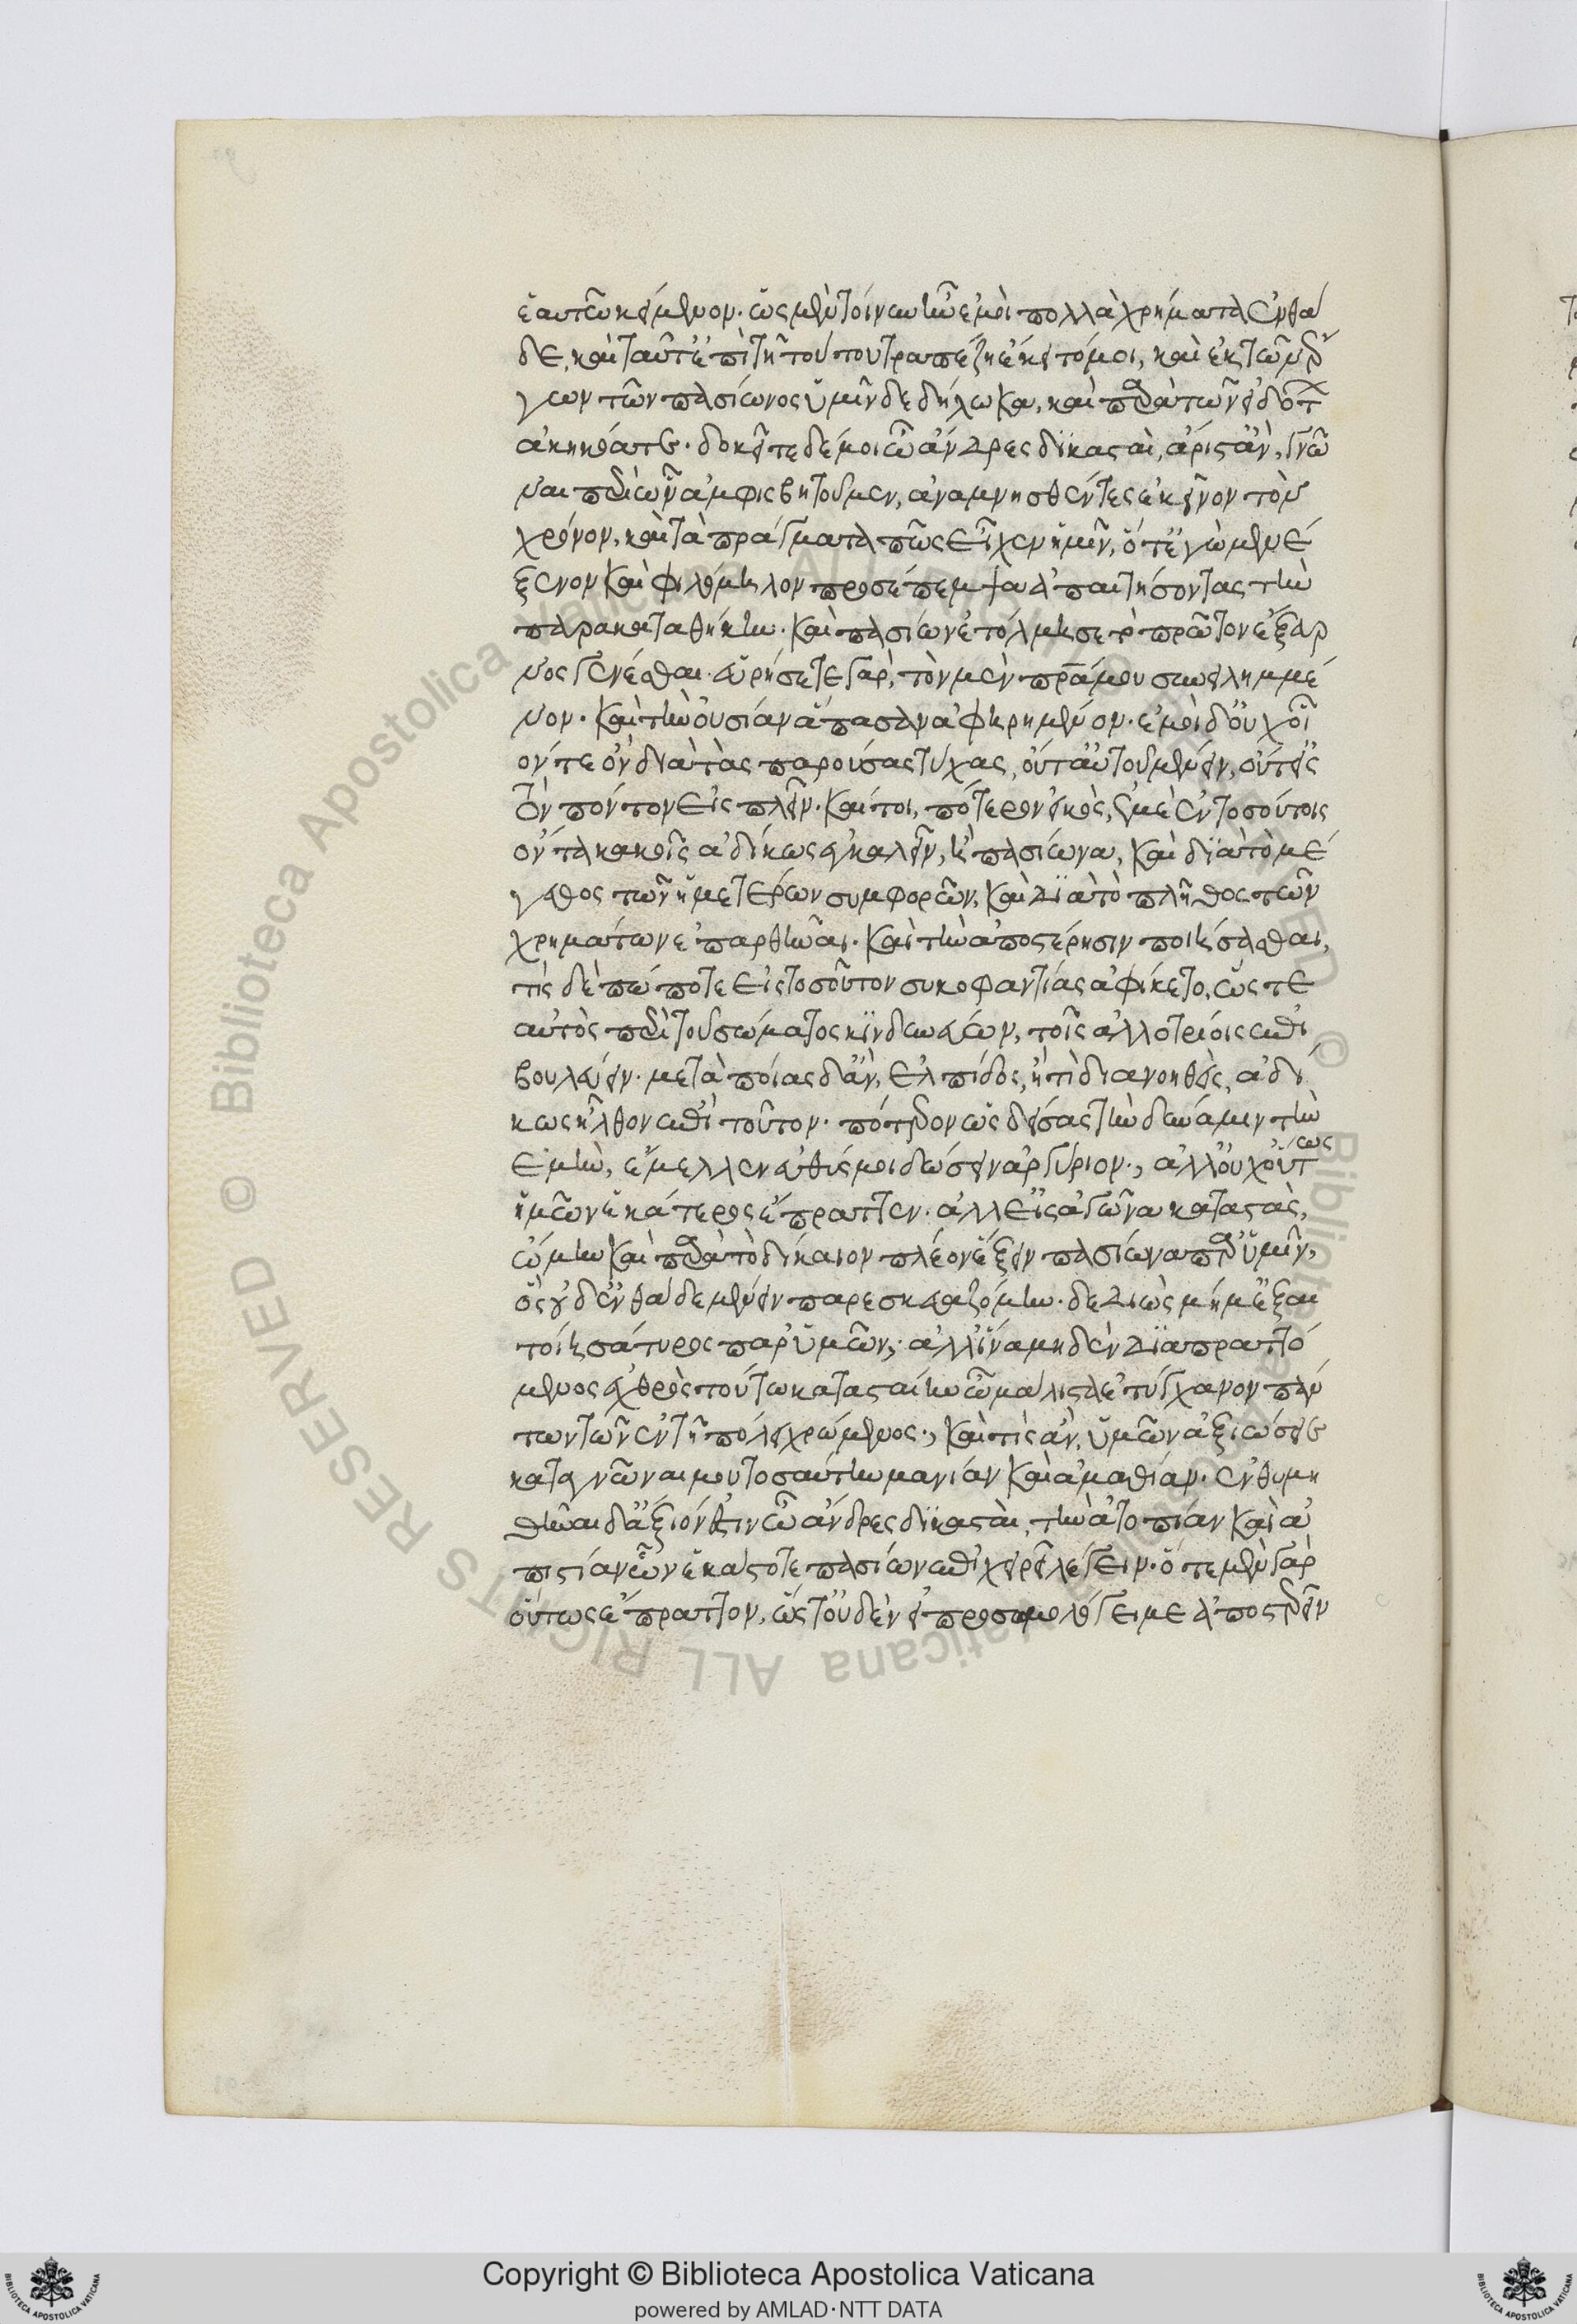 ἑαυτῶ κείμενον. ὡς μὲν τοίνυν ἦν ἐμοὶ πολλὰ χρήματα ἐνθά
δε, καὶ ταῦτ' ἐπὶ τῆ τούτου τραπέζη ἔκειτό μοι, καὶ ἐκ τῶν ἔρ
γων τῶν πασίωνος ὑμῖν δεδήλωκα, καὶ παρὰ τῶν εἰδότων
ἀκηκόατε. δοκεῖτε δέ μοι ὦ ἄνδρες δικασταὶ, ἄριστ' ἂν, γνῶ
ναι περὶ ὧν ἀμφισβητοῦμεν, ἀναμνησθέντες ἐκεῖνον τὸν
χρόνον, καὶ τὰ πράγματα πῶς εἶχεν ἡμῖν, ὅτ' ἐγὼ μενέ
ξενον καὶ φιλόμηλον προσέπεμψα ἀπαιτήσοντας τὴν
παρακαταθήκην. καὶ πασίων ἐτόλμησε τὸ πρῶτον ἔξαρ
νος γενέσθαι. εὑρήσετε γὰρ, τὸν μὲν πατέρα μου συνειλημμέ
νον. καὶ τὴν οὐσίαν ἅπασαν ἀφηρημένον. ἐμοὶ δ' οὐχ οἷ
όν τε ὂν διὰ τὰς παρούσας τύχας, οὔτ' αὐτοῦ μένειν, οὔτ' εἰς
τὸν πόντον εἰσπλεῖν. καίτοι, πότερον εἰκὸς, ἐμὲ ἐν τοσούτοις
ὄντα κακοῖς ἀδίκως ἐγκαλεῖν, ἢ πασίωνα, καὶ διὰ τὸ μέ
γεθος τῶν ἡμετέρων συμφορῶν, καὶ διὰ τὸ πλῆθος τῶν
χρημάτων ἐπαρθῆναι. καὶ τὴν ἀποστέρησιν ποιήσασθαι,
τίς δὲ πώποτε εἰς τοσοῦτον συκοφαντίας ἀφίκετο, ὥστε
αὐτὸς περὶ τοῦ σώματος κινδυνεύων, τοῖς ἀλλοτρίοις ἐπι
βουλεύειν. μετὰ ποίας δ' ἂν, ἐλπίδος, ἢ τί διανοηθεὶς, ἀδί
κως ἦλθον ἐπὶ τοῦτον. πότερον ὡς δείσας τὴν δύναμιν τὴν
ἐμὴν, ἔμελλεν εὐθύς μοι δώσειν ἀργύριον., ἀλλ' οὐχ οὕτως
ἡμῶν ἑκάτερος ἔπραττεν. ἀλλ' εἰς ἀγῶνα καταστὰς,
ὤμην καὶ παρὰ τὸ δίκαιον πλέον ἕξειν πασίωνα παρ' ὑμῖν,
ὃς οὐδ' ἐνθάδε μένειν παρεσκευαζόμην. δεδιὼς μή μ' ἐξαι
τοίη σάτυρος παρ' ὑμῶν; ἀλλ' ἵνα μηδὲν διαπραττό
μενος ἐχθρὸς τούτω κατασταίην ὧ μάλιστα ἐτύγχανον πάν
των τῶν ἐν τῆ πόλει χρώμενος., καὶ τίς ἂν, ὑμῶν ἀξιώσειε
καταγνῶναι μου τοσαύτην μανίαν καὶ ἀμαθίαν. ἐνθυμη
θῆναι δ' ἄξιόν ἐστιν ὦ ἄνδρες δικασταὶ, τὴν ἀτοπίαν καὶ ἀ
πιστίαν ὧν ἑκάστοτε πασίων ἐπιχειρεῖ λέγειν. ὅτε μὲν γὰρ
οὕτως ἔπραττον, ὥστ' οὐδὲν εἰ προσωμολόγει με ἀποστερεῖν